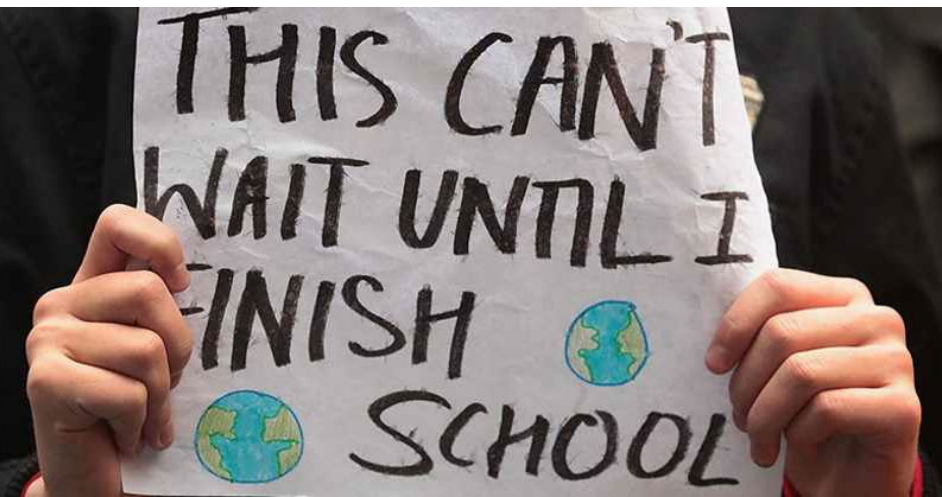 THIS CAN'T
WAIT UNTIL I
FINISH
SCHOOL